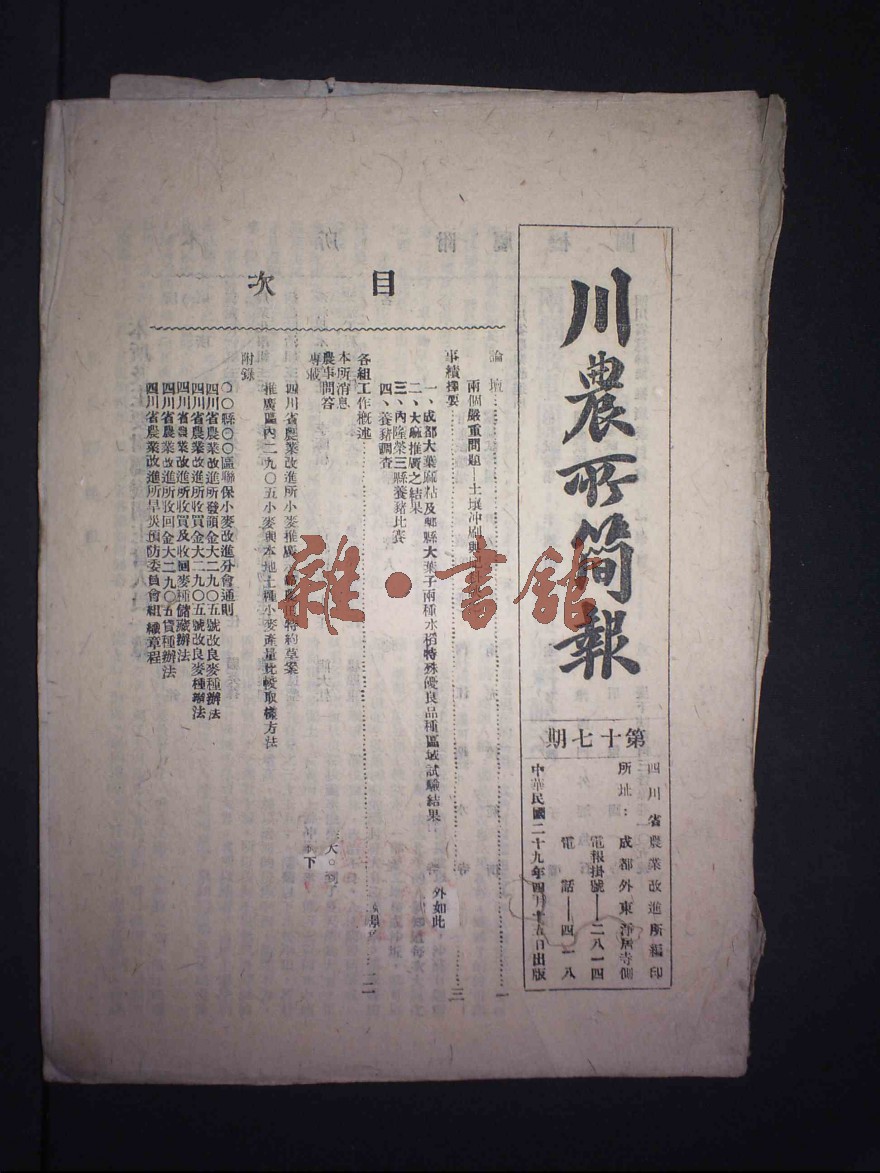 川農所簡報
第十七期
四川省農業改進所編印
所址：成都外東淨居寺側
電報掛號——二八一四
電話——四一八
中華民國二十九年四月十五日出版
目次
論壇……一
兩個嚴重問題——土壤冲刷與
事績擇要……三
一、成都大葉麻粘及郫縣大葉子兩種水稻特殊優良品種區域試驗結果
二、大麻推廣之結果
三、內隆榮三縣養豬比賽
四、養豬調查
各組工作概述……一一
本所消息
農事問答
專載
四川省農業改進所小麥推廣特約草案
推廣區內二九〇五小麥與本地土種小麥產量比較取樣方法
附錄
〇〇縣〇〇區聯保小麥改進分會通則
四川省農業改進所發領金大二九〇五號改良麥種辦法
四川省農業改進所收買金大二九〇五號改良麥種辦法
四川省農業改進所收買及收回麥種儲藏辦法
四川省農業改進所收回金大二九〇五貸種辦法
四川省農業改進所旱災預防委員會組織章程
外如此
下
雜·書館